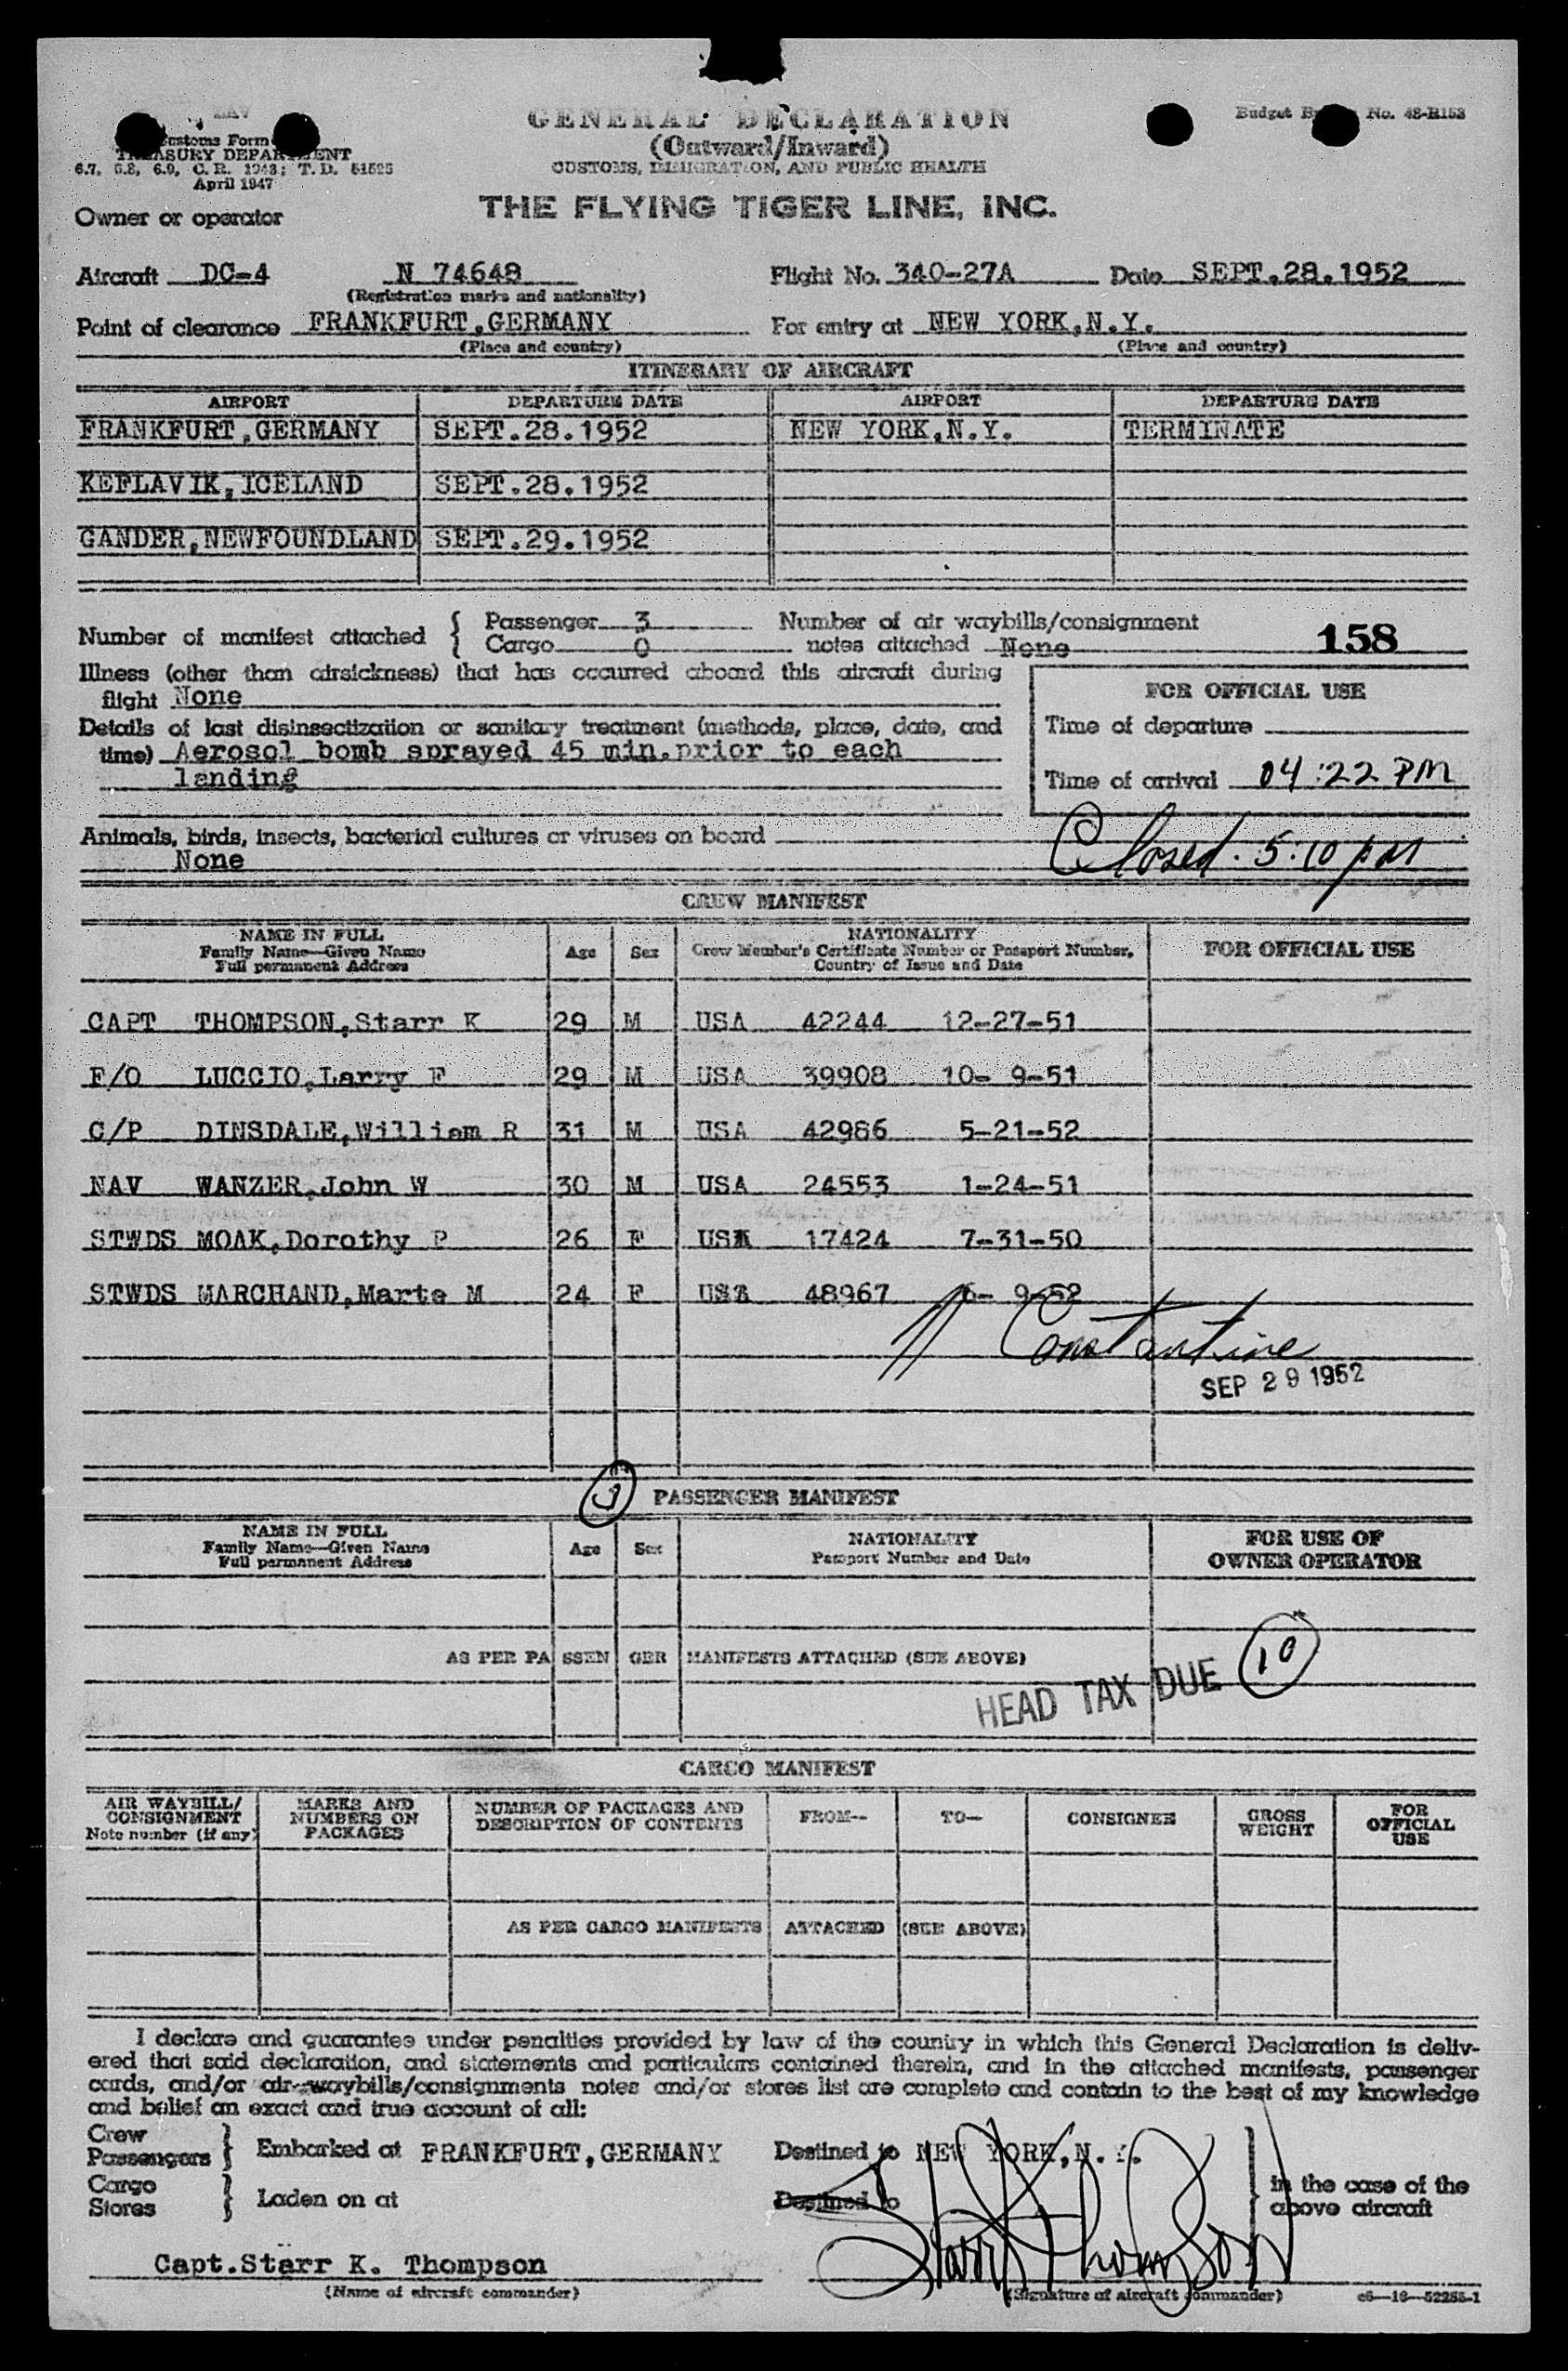 GENERAL DECLARATION
(Outward/Inward)
CUSTOMS, IMMIGRATION, AND PUBLIC HEALTH
Customs Form
TREASURY DEPARTMENT
6.7, 6.8, 6.9, C. R. 1943; T. D. 51525
April 1947
Budget No. 48-R153
Owner or operator THE FLYING TIGER LINE, INC.
Aircraft DC-4 N 74648 Flight No. 340-27A Date SEPT.28.1952
(Registration marks and nationality)
Point of clearance FRANKFURT,GERMANY For entry at NEW YORK,N.Y.
(Place and country) (Place and country)
ITINERARY OF AIRCRAFT
AIRPORT DEPARTURE DATE AIRPORT DEPARTURE DATE
FRANKFURT,GERMANY SEPT.28.1952 NEW YORK,N.Y. TERMINATE
KEFLAVIK,ICELAND SEPT.28.1952
GANDER,NEWFOUNDLAND SEPT.29.1952
Number of manifest attached { Passenger 3 Number of air waybills/consignment
Cargo 0 notes attached None 158
Illness (other than airsickness) that has occurred aboard this aircraft during
flight None
FOR OFFICIAL USE
Details of last disinsectization or sanitary treatment (methods, place, date, and
time) Aerosol bomb sprayed 45 min.prior to each
landing
Time of departure
Time of arrival 04:22 PM
Animals, birds, insects, bacterial cultures or viruses on board
None
Closed. 5:10 pM
CREW MANIFEST
NAME IN FULL
Family Name—Given Name
Full permanent Address
Age Sex
NATIONALITY
Crew Member's Certificate Number or Passport Number,
Country of Issue and Date
FOR OFFICIAL USE
CAPT THOMPSON,Starr K 29 M USA 42244 12-27-51
F/O LUCCIO,Larry F 29 M USA 39908 10- 9-51
C/P DINSDALE,William R 31 M USA 42986 5-21-52
NAV WANZER,John W 30 M USA 24553 1-24-51
STWDS MOAK,Dorothy P 26 F USA 17424 7-31-50
STWDS MARCHAND,Marte M 24 F 48967 6- 9-52
Constantine
SEP 29 1952
3 PASSENGER MANIFEST
NAME IN FULL
Family Name—Given Name
Full permanent Address
Age Sex
NATIONALITY
Passport Number and Date
FOR USE OF
OWNER OPERATOR
AS PER PASSENGER MANIFESTS ATTACHED (SEE ABOVE)
HEAD TAX DUE 10
CARGO MANIFEST
AIR WAYBILL/
CONSIGNMENT
Note number (if any)
MARKS AND
NUMBERS ON
PACKAGES
NUMBER OF PACKAGES AND
DESCRIPTION OF CONTENTS
FROM— TO— CONSIGNEE
GROSS
WEIGHT
FOR
OFFICIAL
USE
AS PER CARGO MANIFESTS ATTACHED (SEE ABOVE)
I declare and guarantee under penalties provided by law of the country in which this General Declaration is deliv-
ered that said declaration, and statements and particulars contained therein, and in the attached manifests, passenger
cards, and/or air-waybills/consignments notes and/or stores list are complete and contain to the best of my knowledge
and belief an exact and true account of all:
Crew
Passengers } Embarked at FRANKFURT,GERMANY Destined to NEW YORK,N.Y.
Cargo
Stores } Laden on at Destined to
in the case of the
above aircraft
Capt.Starr K. Thompson Starr K Thompson
(Name of aircraft commander) (Signature of aircraft commander) c6—16—52255-1